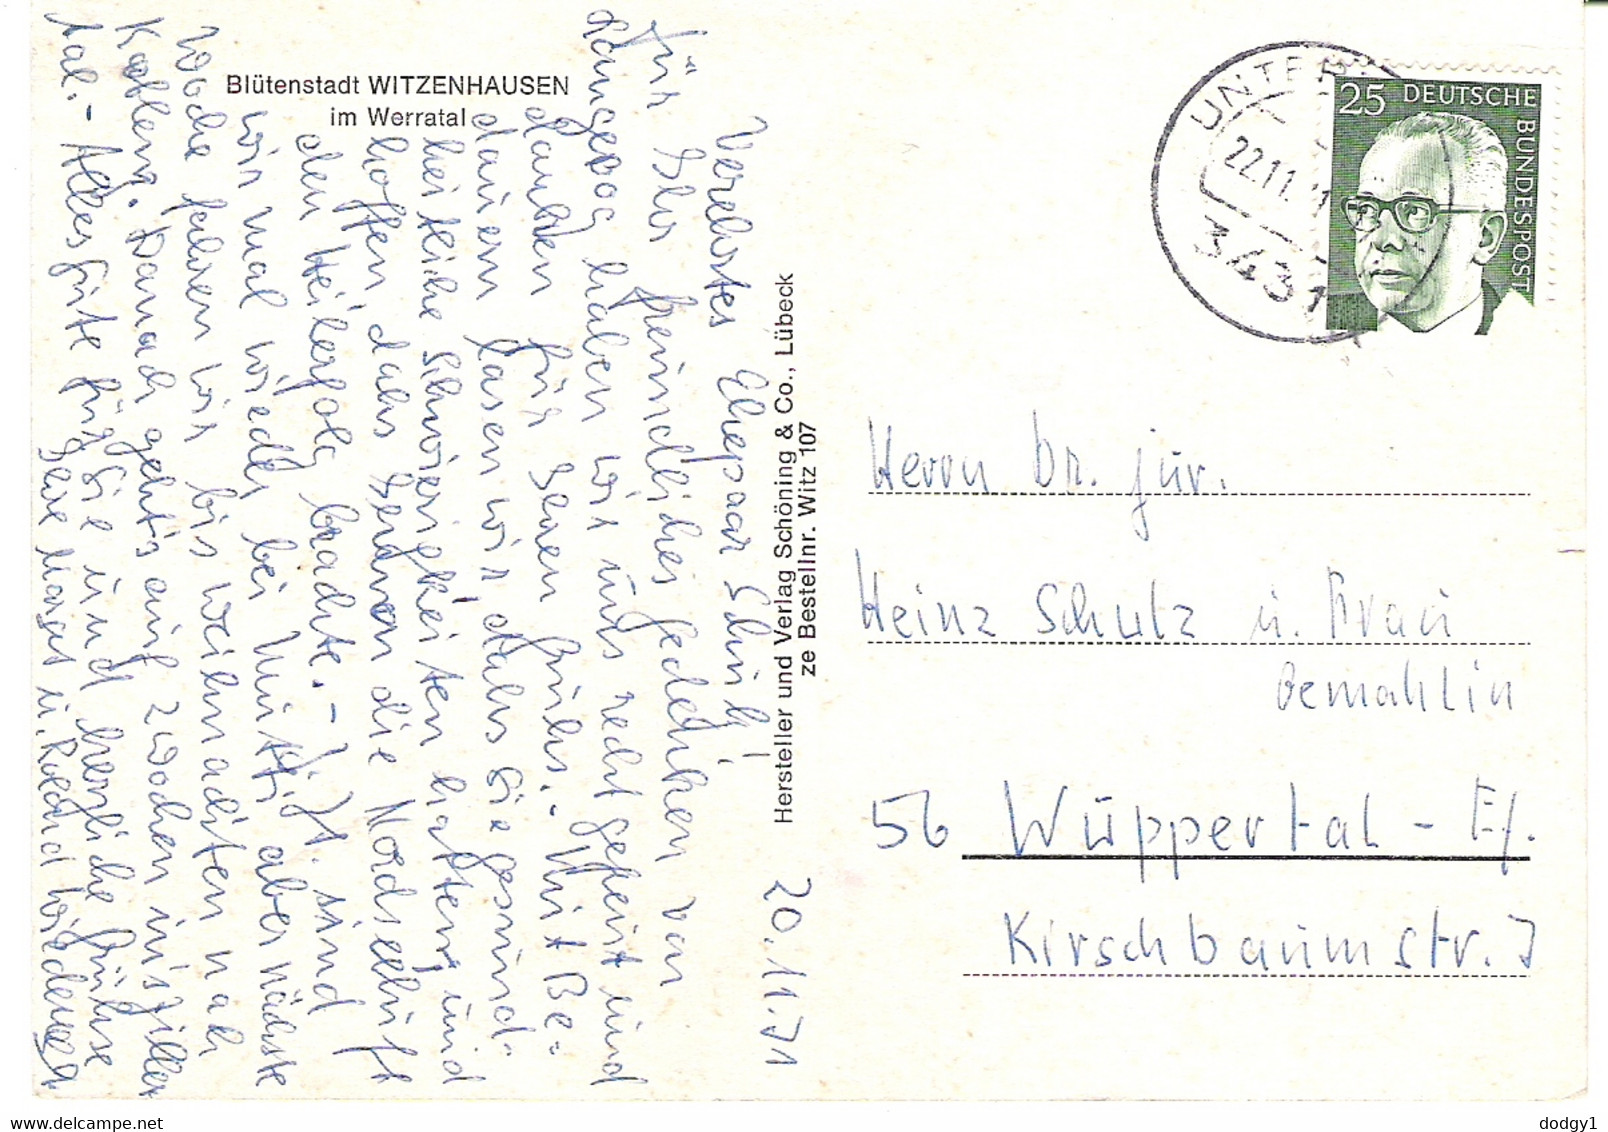 Blütenstadt WITZENHAUSEN
im Werratal
20.11.71
Verehrtes Ehepaar Schulz!
Für Ihr freundliches Gedenken von
Langeoog haben wir uns recht gefreut und
danken für Ihren Gruß. - Mit Be=
dauern lasen wir, daß Sie gesund-
heitliche Schwierigkeiten hatten und
hoffen, daß Ihnen die Nordseeluft
den Heilerfolg brachte. - Jzt. sind
wir mal wieder bei Mutti, aber nächste
Woche fahren wir bis Weihnachten nach
Koblenz. Danach geht's auf 2 Wochen ins Ziller
tal. - Alles Gute für Sie und herzliche Grüße
Ihre Margot u. Roland
Hersteller und Verlag Schöning & Co., Lübeck
ze Bestellnr. Witz 107
UNTER
22.11.
3431
25 DEUTSCHE
BUNDESPOST
Herrn Dr. jur.
Heinz Schulz u. Frau
Gemahlin
56 Wuppertal - Elf.
Kirschbaumstr. 7
dodgy1